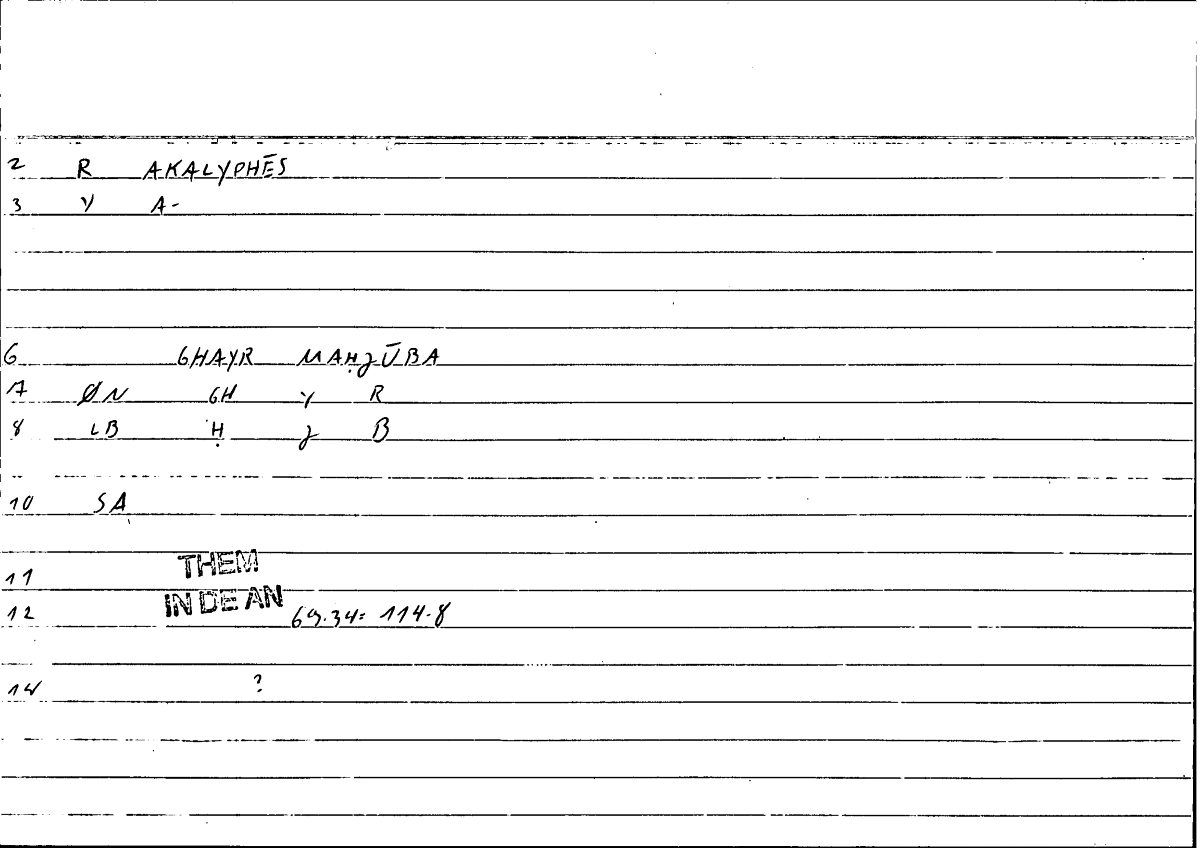 2 R AKALYPHĒS
3 Y A-
6 GHAYR MAḤJŪBA
7 ØN GH Y R
8 LB Ḥ J B
10 SA
11 THEM
12 IN DE AN 69.34= 114.8
14 ?